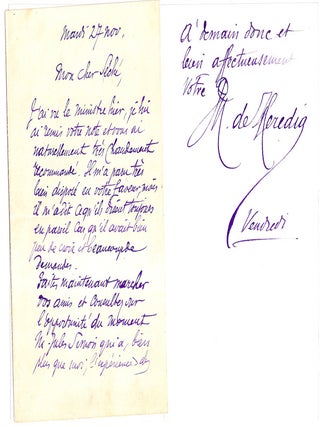 Mardi 27 nov.
Mon cher Séché,
J'ai vu le ministre hier, je lui
ai remis votre note et vous ai
naturellement très chaudement
recommandé. Il m'a paru très
bien disposé en votre faveur, mais
il m'a dit ce qu'ils disent toujours
en pareil cas qu'il avait bien
peu de croix et beaucoup de
demandes.
Faites maintenant marcher
vos amis et consultez sur
l'opportunité du moment
M. Jules Simon qui a, bien
plus que moi, l'expérience des
A demain donc et
bien affectueusement
Votre
de Heredia
Vendredi